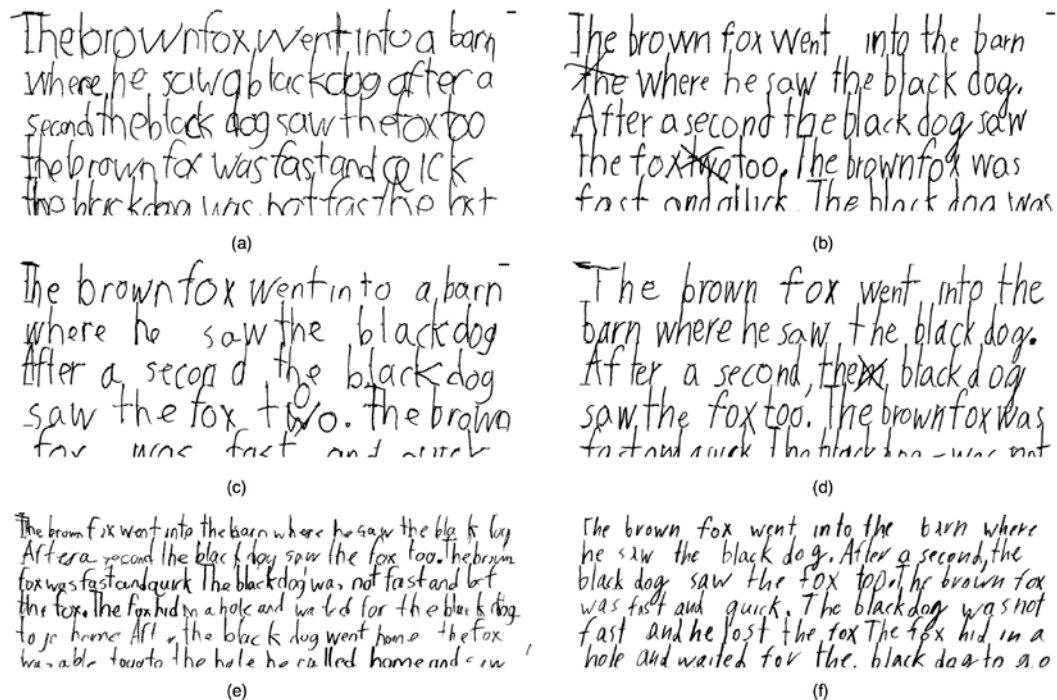 The brown fox went into a barn
where he saw a black dog after a
second the black dog saw the fox too
the brown fox was fast and quick
the black dog was not fast the lost
(a)
The brown fox went into the barn
the where he saw the black dog.
After a second the black dog saw
the fox two too. The brown fox was
fast and quick. The black dog was
(b)
The brown fox went into a barn
where he saw the black dog
After a second the black dog
saw the fox two. The brown
fox was fast and quick
(c)
The brown fox went into the
barn where he saw the black dog.
After a second, them black dog
saw the fox too. The brown fox was
fast and quick The black dog - was not
(d)
The brown fox went into the barn where he saw the black dog
After a second the black dog saw the fox too. The brown
fox was fast and quick The black dog was not fast and lost
the fox. The fox hid in a hole and waited for the black dog
to go home Aft the black dog went home the fox
was able to go to the hole he called home and saw
(e)
The brown fox went into the barn where
he saw the black dog. After a second, the
black dog saw the fox too. The brown fox
was fast and quick. The black dog was not
fast and he lost the fox The fox hid in a
hole and waited for the. black dog to go
(f)